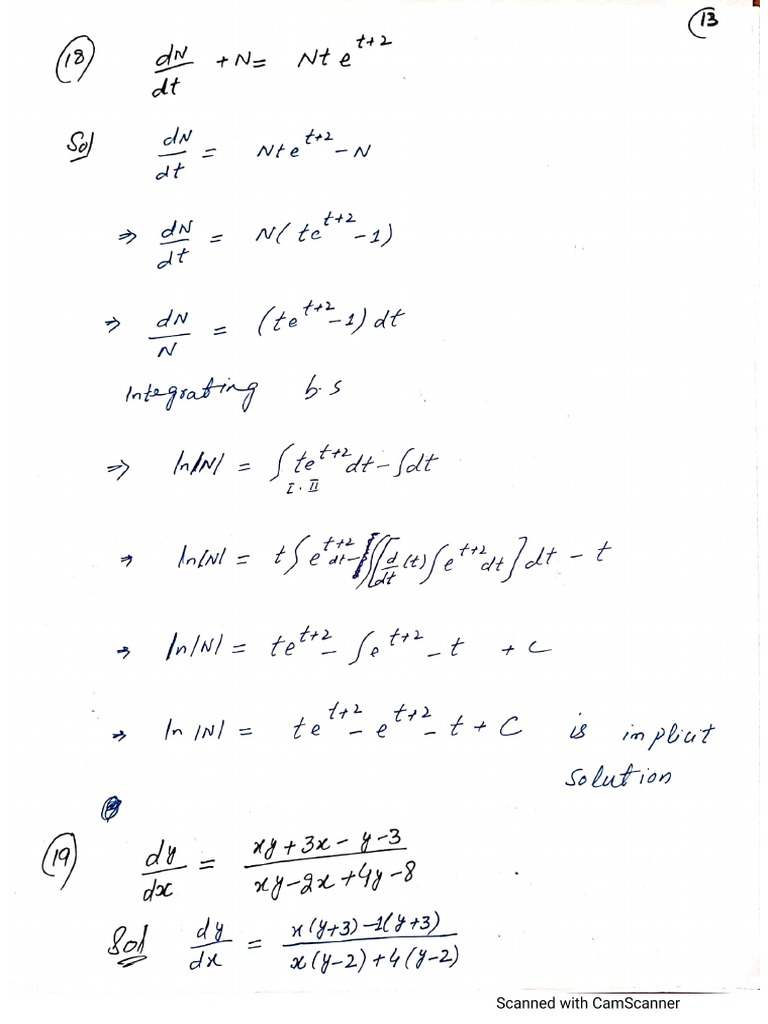 13
(18) dN/dt + N = Nt e^{t+2}
Sol dN/dt = Nte^{t+2} - N
⇒ dN/dt = N(te^{t+2} - 1)
⇒ dN/N = (te^{t+2} - 1) dt
Integrating b.s
⇒ ln|N| = ∫ te^{t+2} dt - ∫dt
I . II
⇒ ln|N| = t∫e^{t+2} dt - ∫[d/dt (t) ∫e^{t+2} dt] dt - t
⇒ ln|N| = te^{t+2} - ∫e^{t+2} - t + C
⇒ ln|N| = te^{t+2} - e^{t+2} - t + C is implicit
solution
(19) dy/dx = xy + 3x - y - 3 / xy - 2x + 4y - 8
Sol dy/dx = x(y+3) - 1(y+3) / x(y-2) + 4(y-2)
Scanned with CamScanner